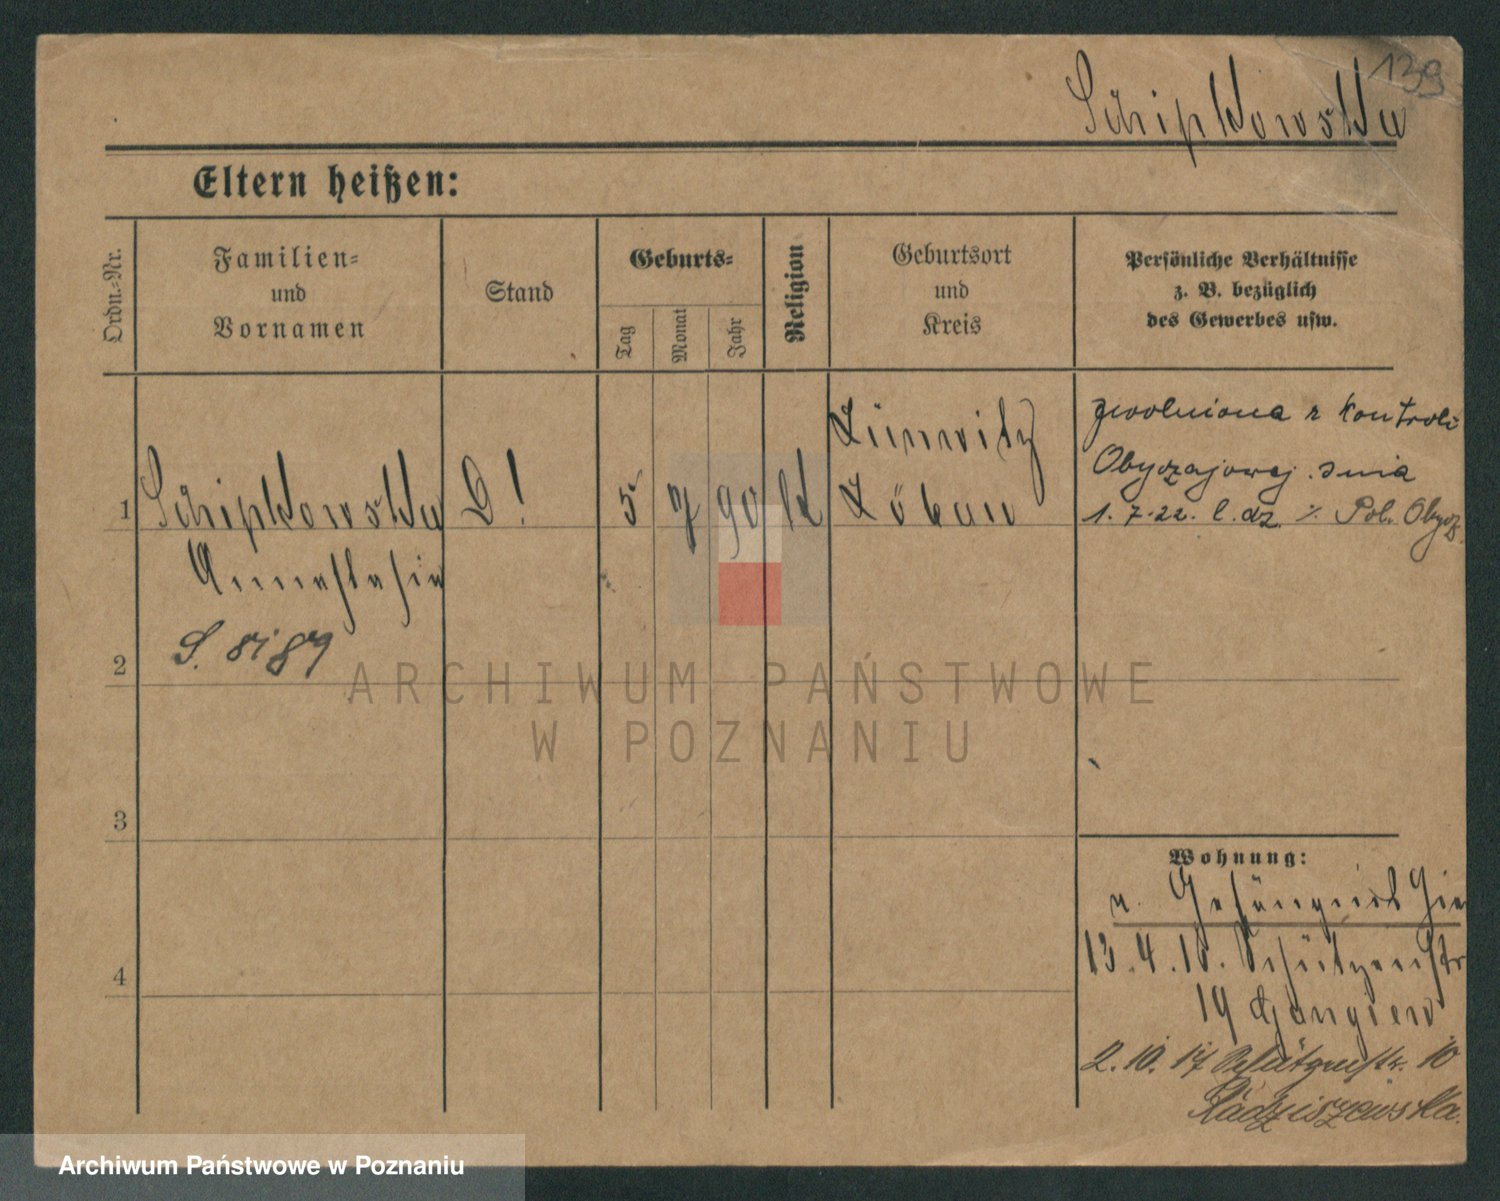 139
Schipkowska
Eltern heißen:
Ordn.-Nr.
Familien-
und
Vornamen
Stand
Geburts-
Tag
Monat
Jahr
Religion
Geburtsort
und
Kreis
Persönliche Verhältnisse
z. B. bezüglich
des Gewerbes usw.
1
Schipkowska
D!
5
7
90
K
Löbau
zwolniona z kontroli
Obyczajowej dnia
1.7.22. l. dz. ./. Pol. Obycz.
Annastasia
2
S. 8189
ARCHIWUM PAŃSTWOWE
W POZNANIU
3
Wohnung:
Gefängnis
13.4.16. Schützenstr
19
4
2.10.17 Schützenstr. 10
Radziszewska.
Archiwum Państwowe w Poznaniu